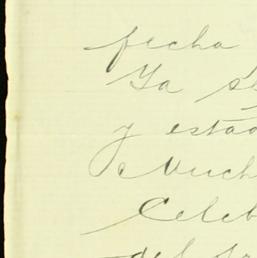 fecha
Ya se
y estad
Much
Celeb
del